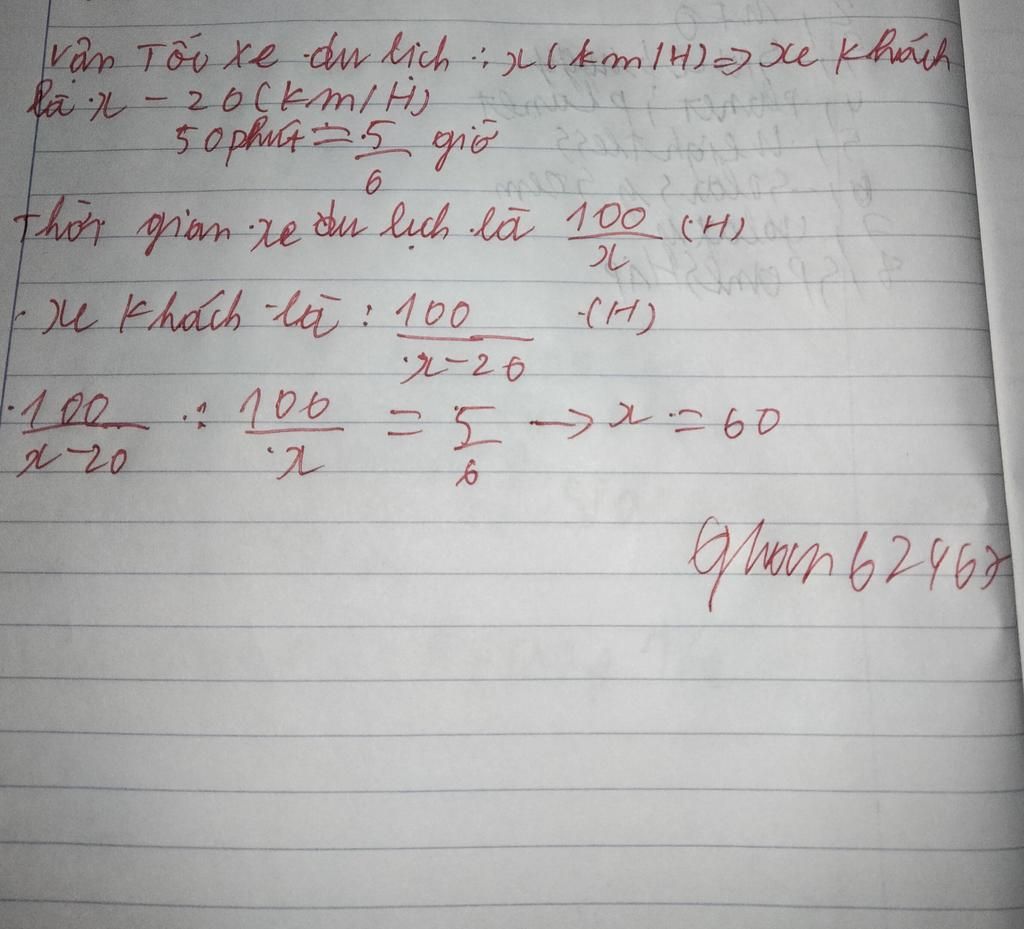 Vận Tốc xe du lịch : x (km/H) => xe khách
là x - 20 (km/H)
50 phút = 5/6 giờ
Thời gian xe du lịch là 100/x (H)
xe khách là : 100/x-20 (H)
100/x-20 : 100/x = 5/6 → x = 60